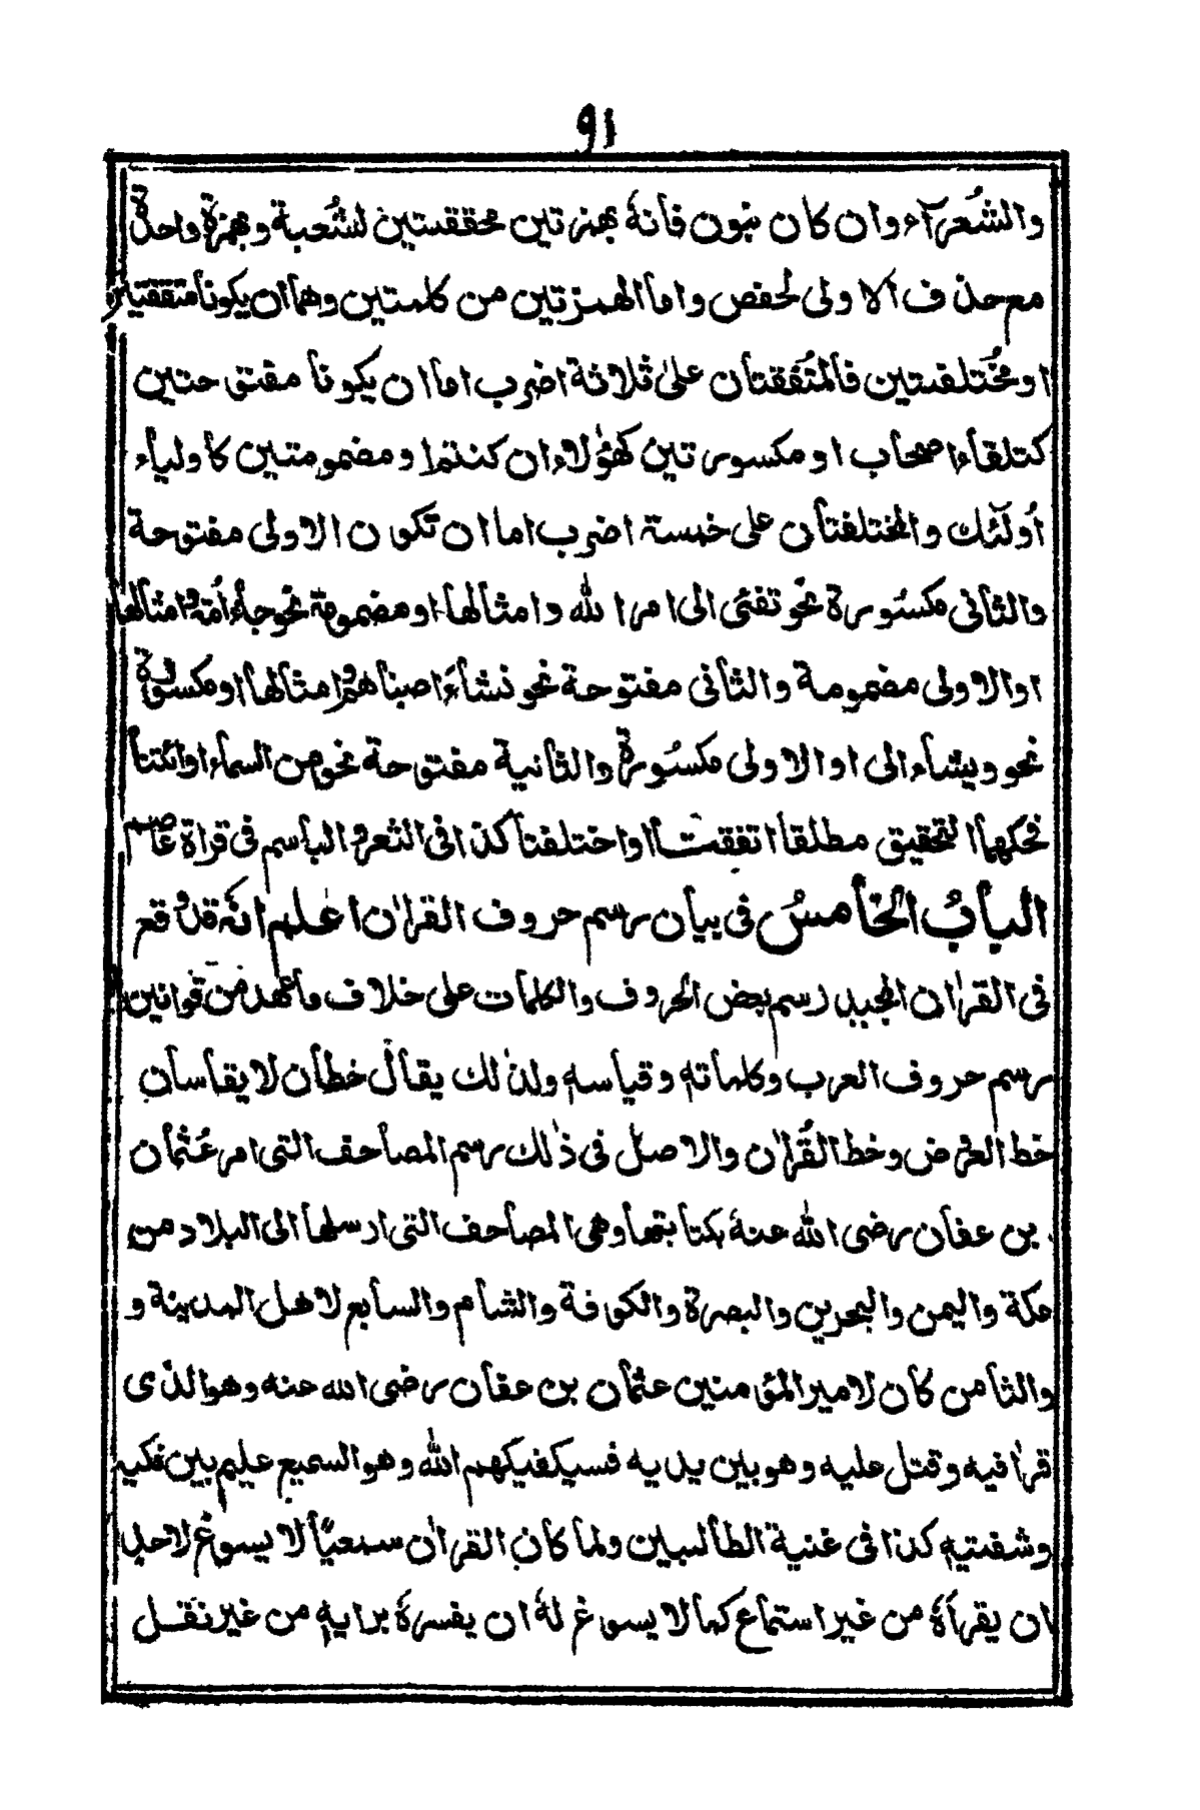 ٩١
والشعرآء وان كان نبون فانهٗ بهمزتين محققتين لشُعبة وبهمزة واحدة
مع حذف الاولى لحفص واما الهمزتين من كلمتين وهما ان يكونا متفقتين
او مختلفتين فالمتفقتان علىٰ ثلاثة اضرب اما ان يكونا مفتوحتين
كتلقآء اصحاب او مكسورتين كهٰؤلاء ان كنتم او مضمومتين كاولياء
اُولٰٓئك والمختلفتان على خمسة اضرب اما ان تكون الاولى مفتوحة
والثانى مكسورة نحو تفئى الى امر الله وامثالها او مضمومة نحو جاء اُمة وامثالها
او الاولى مضمومة والثانى مفتوحة نحو نشآء اصبناهم وامثالها او مكسورة
نحو ويشاء الى او الاولى مكسُورة والثانية مفتوحة نحو من السماء او ائتنا
فحكمها التحقيق مطلقا اتفقتا او اختلفتا كذا فى الثغر والباسم فى قراة عاصم
البابُ الخامسُ فى بيان رسم حروف القراٰن اعلم انهٗ قد وقع
فى القراٰن المجيد رسم بعض الحروف والكلمات على خلاف ما عهد من قوانين
رسم حروف العرب وكلماته وقياسه ولذٰلك يقال خطان لا يقاسان
خط العروض وخط القُراٰن والاصل فى ذٰلك رسم المصاحف التى امر عُثمان
بن عفان رضى الله عنهٗ بكتابتها وهى المصاحف التى ارسلها الى البلاد من
مكة واليمن والبحرين والبصرة والكوفة والشام والسابع لاهل المدينة و
والثامن كان لامير المؤمنين عثمان بن عفان رضى الله عنه وهو الذى
قرأ فيه وقتل عليه وهو بين يديه فسيكفيكهم الله وهو السميع عليم بين فكيه
وشفتيه كذا فى غنية الطالبين ولما كان القراٰن سمعيًا لا يسوغ لاحد
ان يقرأهٗ من غير استماع كما لا يسوغ لهٗ ان يفسرهٗ برايه من غير نقل